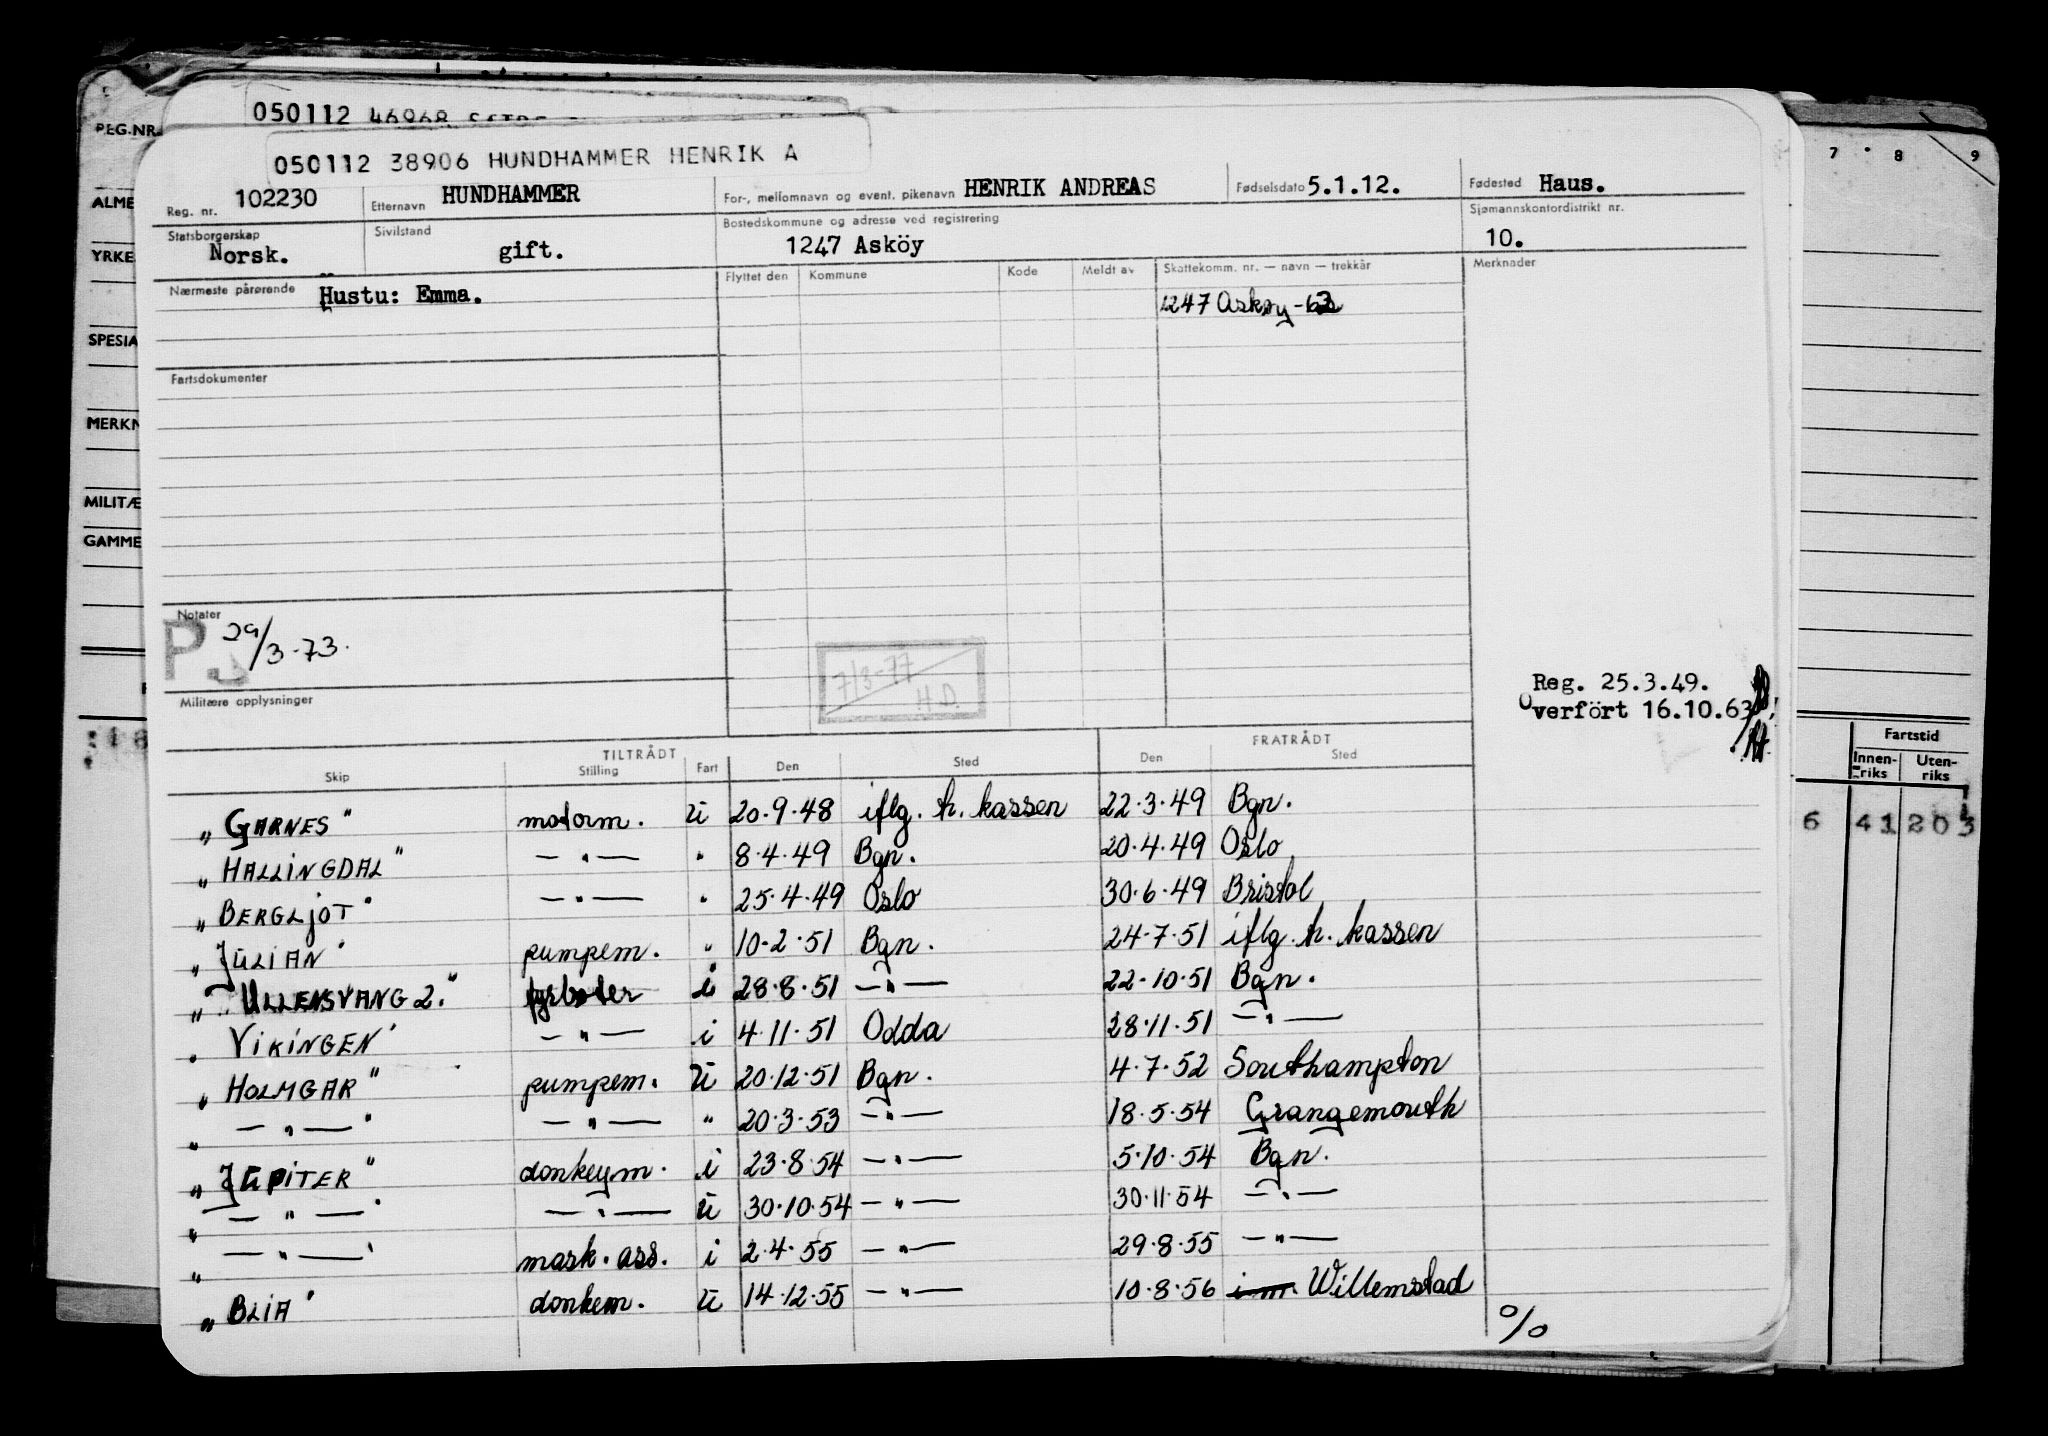 050112 46968
050112 38906 HUNDHAMMER HENRIK A
Reg. nr. 102230 Etternavn HUNDHAMMER For-, mellomnavn og event. pikenavn HENRIK ANDREAS Fødselsdato 5.1.12. Fødested Haus.
Statsborgerskap Norsk. Sivilstand gift. Bostedskommune og adresse ved registrering 1247 Asköy Sjømannskontordistrikt nr. 10.
Nærmeste pårørende Hustu: Emma. Flyttet den Kommune Kode Meldt av Skattekomm. nr. — navn — trekkår Merknader
1247 Askøy -63
Fartsdokumenter
Notater
P. 29/3-73.
7/3-77
H.D.
Militære opplysninger
Reg. 25.3.49.
Overfört 16.10.63
TILTRÅDT FRATRÅDT
Skip Stilling Fart Den Sted Den Sted
„ GARNES" motorm. U 20.9.48 iflg. h. kassen 22.3.49 Bgn.
„ HALLINGDAL" — " — " 8.4.49 Bgn. 20.4.49 Oslo
„ BERGLJOT" — " — " 25.4.49 Oslo 30.6.49 Bristol
„ JULIAN" pumpem. " 10.2.51 Bgn. 24.7.51 iflg. h. kassen
„ ULLENSVANG 2." fyrbøter i 28.8.51 — " — 22.10.51 Bgn.
„ VIKINGEN" — " — i 4.11.51 Odda 28.11.51 — " —
„ HOLMGAR" pumpem. U 20.12.51 Bgn. 4.7.52 Southampton
„ — " — " — " — " 20.3.53 — " — 18.5.54 Grangemouth
„ JUPITER" donkeym. i 23.8.54 — " — 5.10.54 Bgn.
„ — " — " — " — U 30.10.54 — " — 30.11.54 — " —
„ — " — " mask. ass. i 2.4.55 — " — 29.8.55 — " —
„ BLIA" donkem. U 14.12.55 — " — 10.8.56 i m. Willemstad
%
REG.NR.
ALME
YRKE
SPESIA
MERKN
MILITÆ
GAMME
7 8 9
Fartstid
Innen-riks Uten-riks
6 41 203